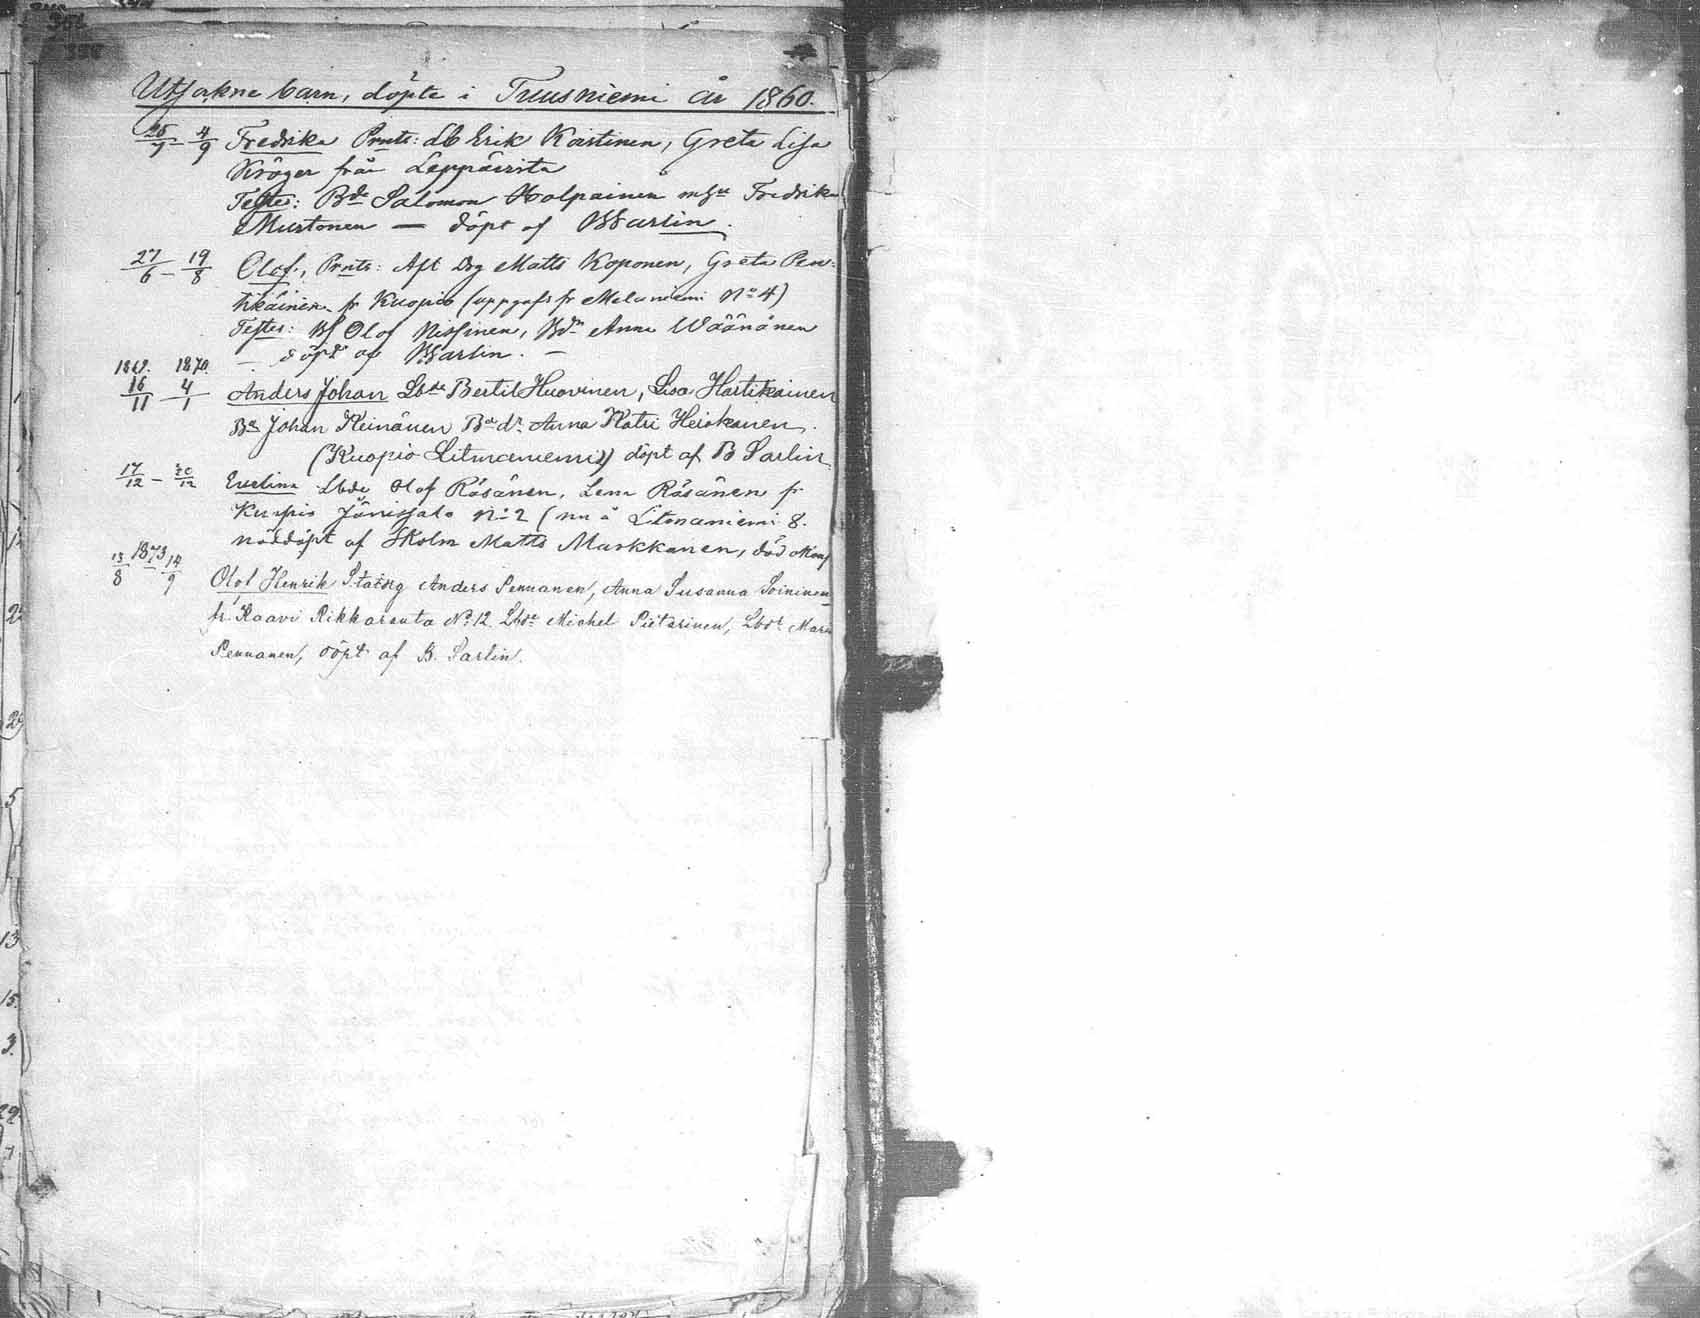 Utsokne barn, döpte i Tuusniemi år 1860.
26/7 – 4/9 Fredrika Prnts: Lb Erik Kaistinen, Greta Lisa
Kröger från Leppävirta
Testes: Bde Salomon Holpainen m hu Fredrika
Murtonen — döpt af BSarlin.
27/6 – 19/8 Olof, Prnts: Afl Drg Matts Koponen, Greta Pen-
tikäinen fr Kuopio (uppgafs fr Melaniemi No 4)
Testes: Olof Nissinen, Bdr Anna Wäänänen
— döpt af BSarlin. —
1869. 1870.
16/11 – 4/1 Anders Johan Lbde Bertil Huovinen, Lisa Hartikainen
Bde Johan Keinänen Bde dr Anna Katri Heiskanen.
(Kuopio Litmaniemi) döpt af B Sarlin
17/12 – 20/12 Evelina Lbde Olof Räsänen, Lena Räsänen fr
Kuopio Jänissalo No 2 (nu å Litmaniemi 8.
nöddöpt af Matts Markkanen, död
1873
13/8 – 14/9 Olof Henrik Statdrg Anders Pennanen, Anna Susanna Soininen
fr Kaavi Rikkaranta No 12 Lbde Michel Pietarinen, Lbdr Maria
Pennanen, döpt af B. Sarlin.